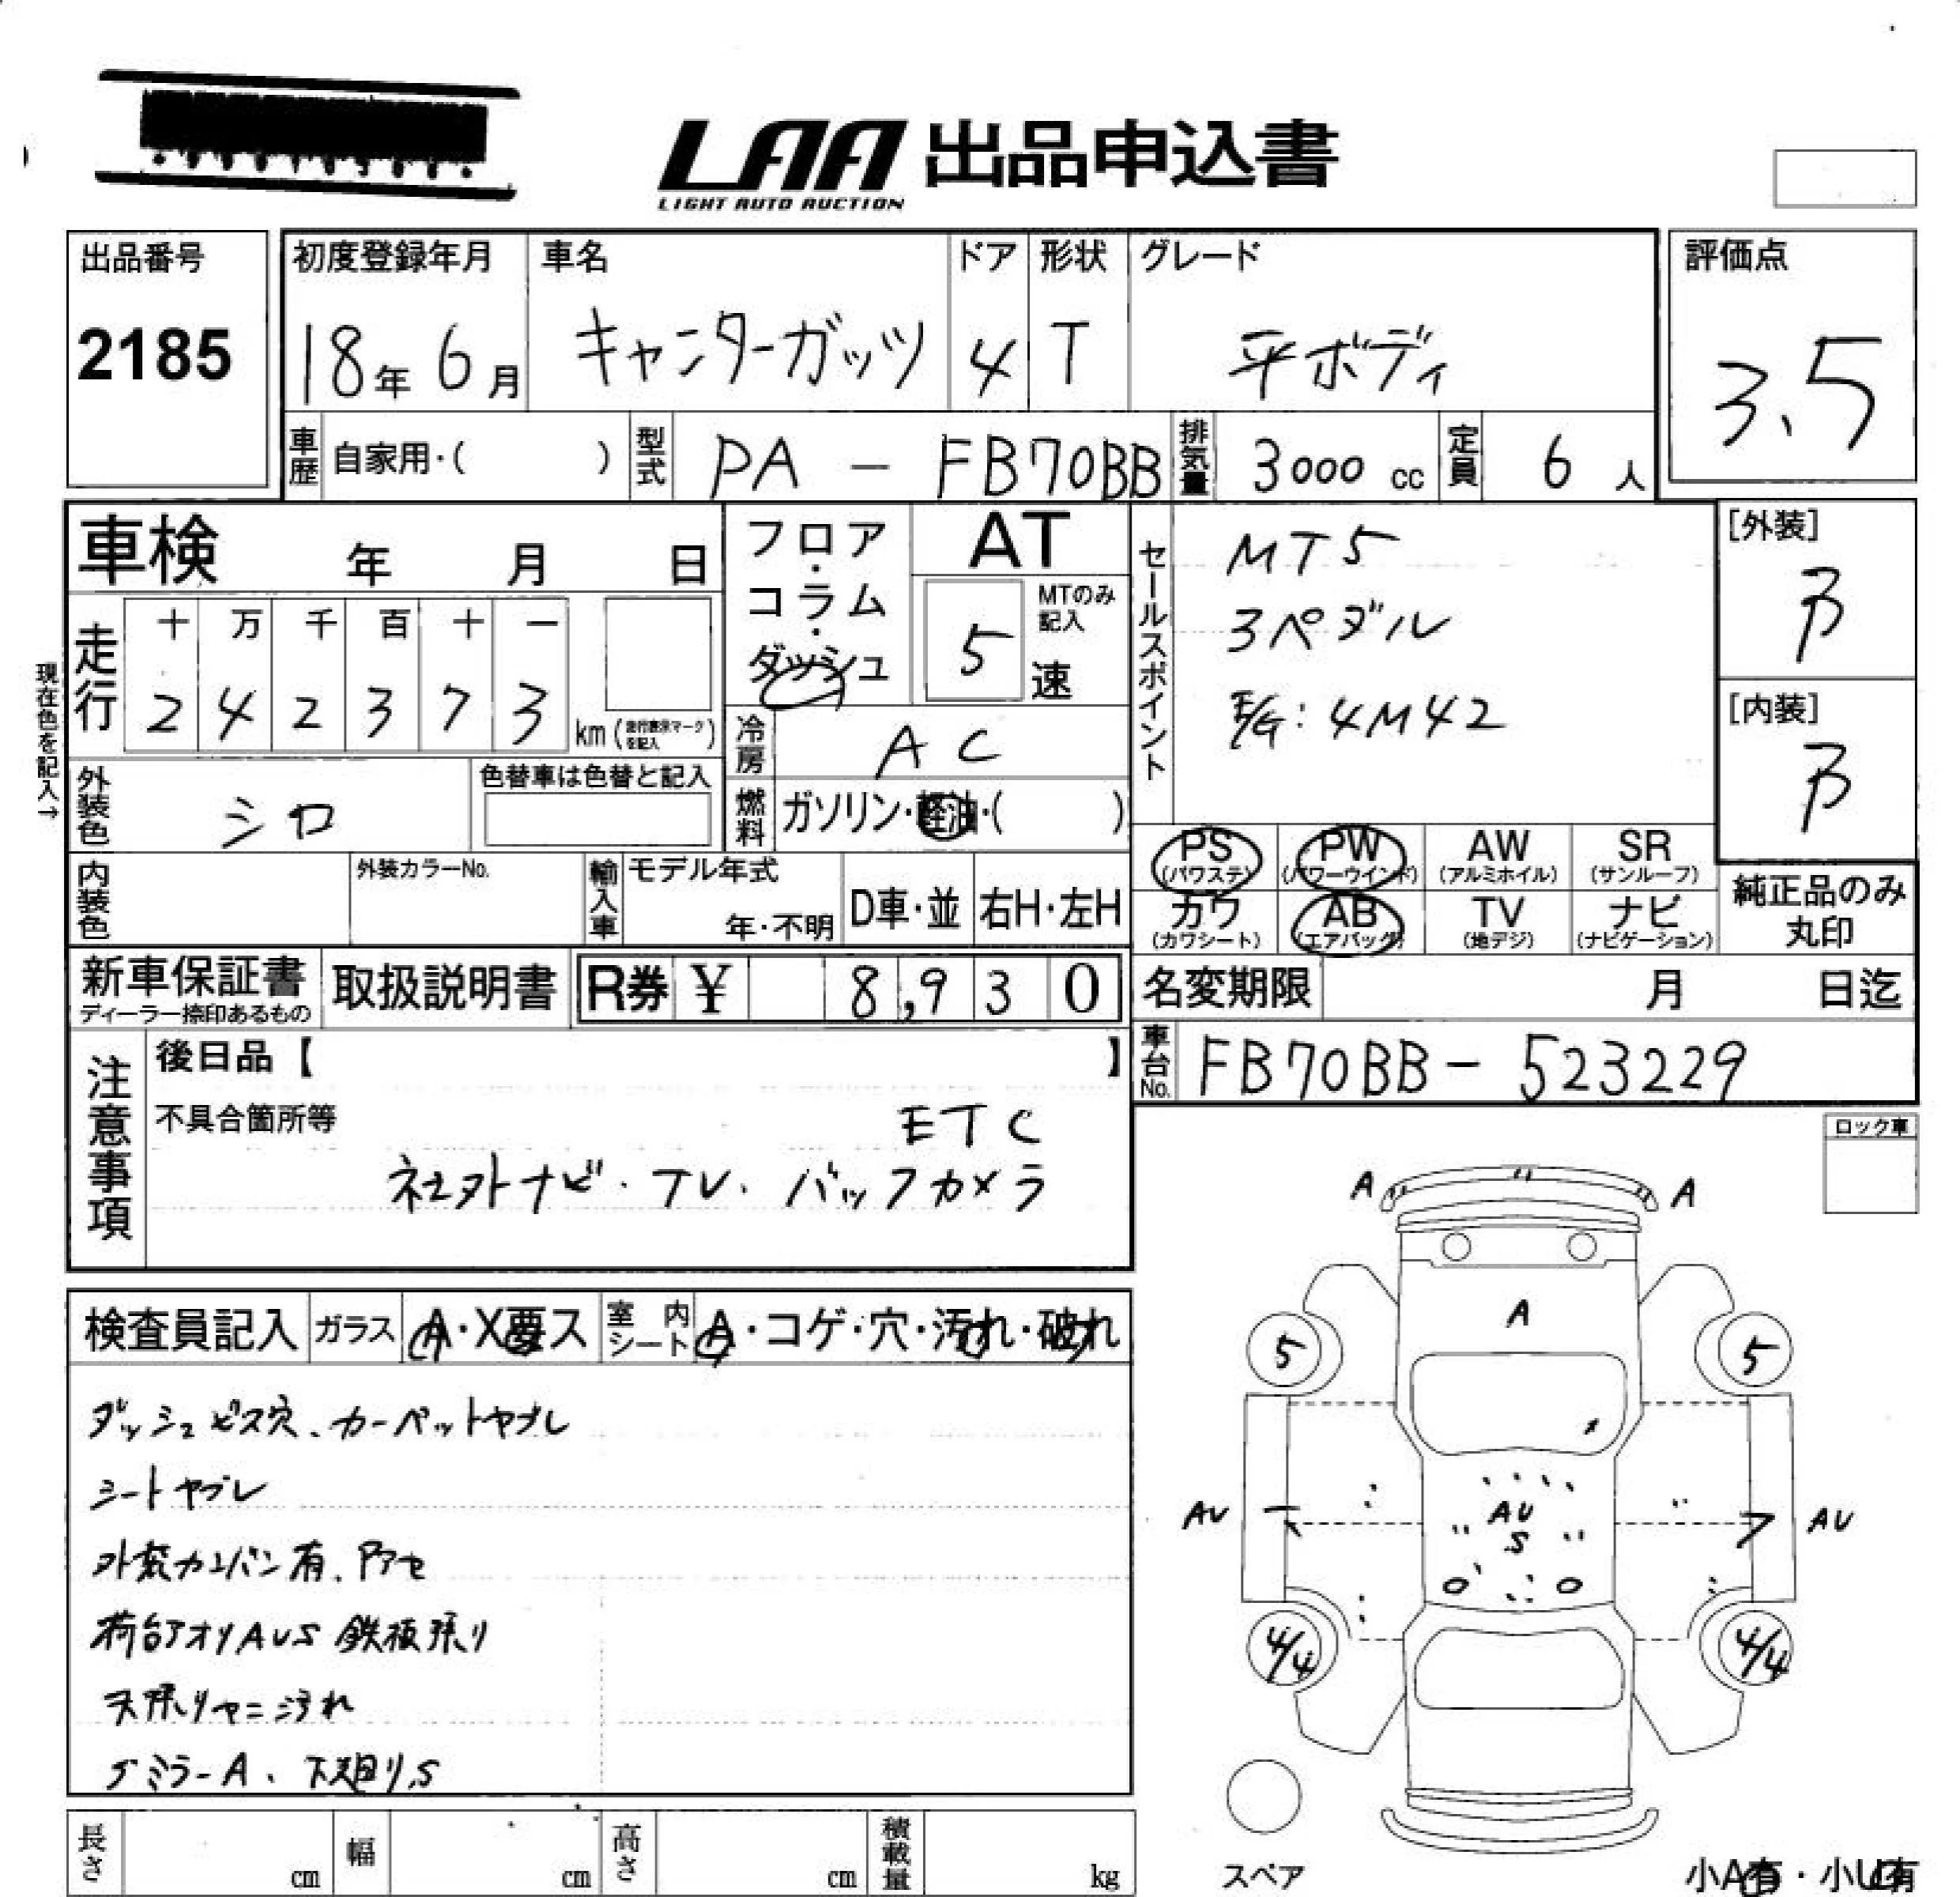 LAA 出品申込書
LIGHT AUTO AUCTION
出品番号
2185
初度登録年月
18年 6月
車名
キャンターガッツ
ドア
4
形状
T
グレード
平ボディ
評価点
3.5
車歴
自家用・( )
型式
PA - FB70BB
排気量
3000 cc
定員
6 人
車検 年 月 日
フロア・コラム・ダッシュ
AT
MTのみ記入
5 速
セールスポイント
MT5
3ペダル
E/G:4M42
[外装]
B
[内装]
B
現在色を記入→
走行
十 万 千 百 十 一
2 4 2 3 7 3
km (走行表示マークを記入)
冷房
AC
外装色
シロ
色替車は色替と記入
燃料
ガソリン・軽油・( )
PS (パワステ)
PW (パワーウインド)
AW (アルミホイル)
SR (サンルーフ)
カワ (カワシート)
AB (エアバッグ)
TV (地デジ)
ナビ (ナビゲーション)
純正品のみ丸印
内装色
外装カラーNo.
輸入車
モデル年式
年・不明
D車・並
右H・左H
新車保証書
ディーラー捺印あるもの
取扱説明書
R券 ¥ 8,930
名変期限 月 日迄
車台No.
FB70BB - 523229
注意事項
後日品【 】
不具合箇所等
ETC
社外ナビ・TV・バックカメラ
ロック車
検査員記入
ガラス
A・X要ス
室内シート
A・コゲ・穴・汚れ・破れ
ダッシュビス穴、カーペットヤブレ
シートヤブレ
外装カンバン有、アセ
荷台アオリAUS 鉄板張り
天張りヤニ汚れ
ミラーA、下廻りS
A A
A
5 5
AU AU S AU
4/4 4/4
長さ cm
幅 cm
高さ cm
積載量 kg
スペア
小A有・小U有